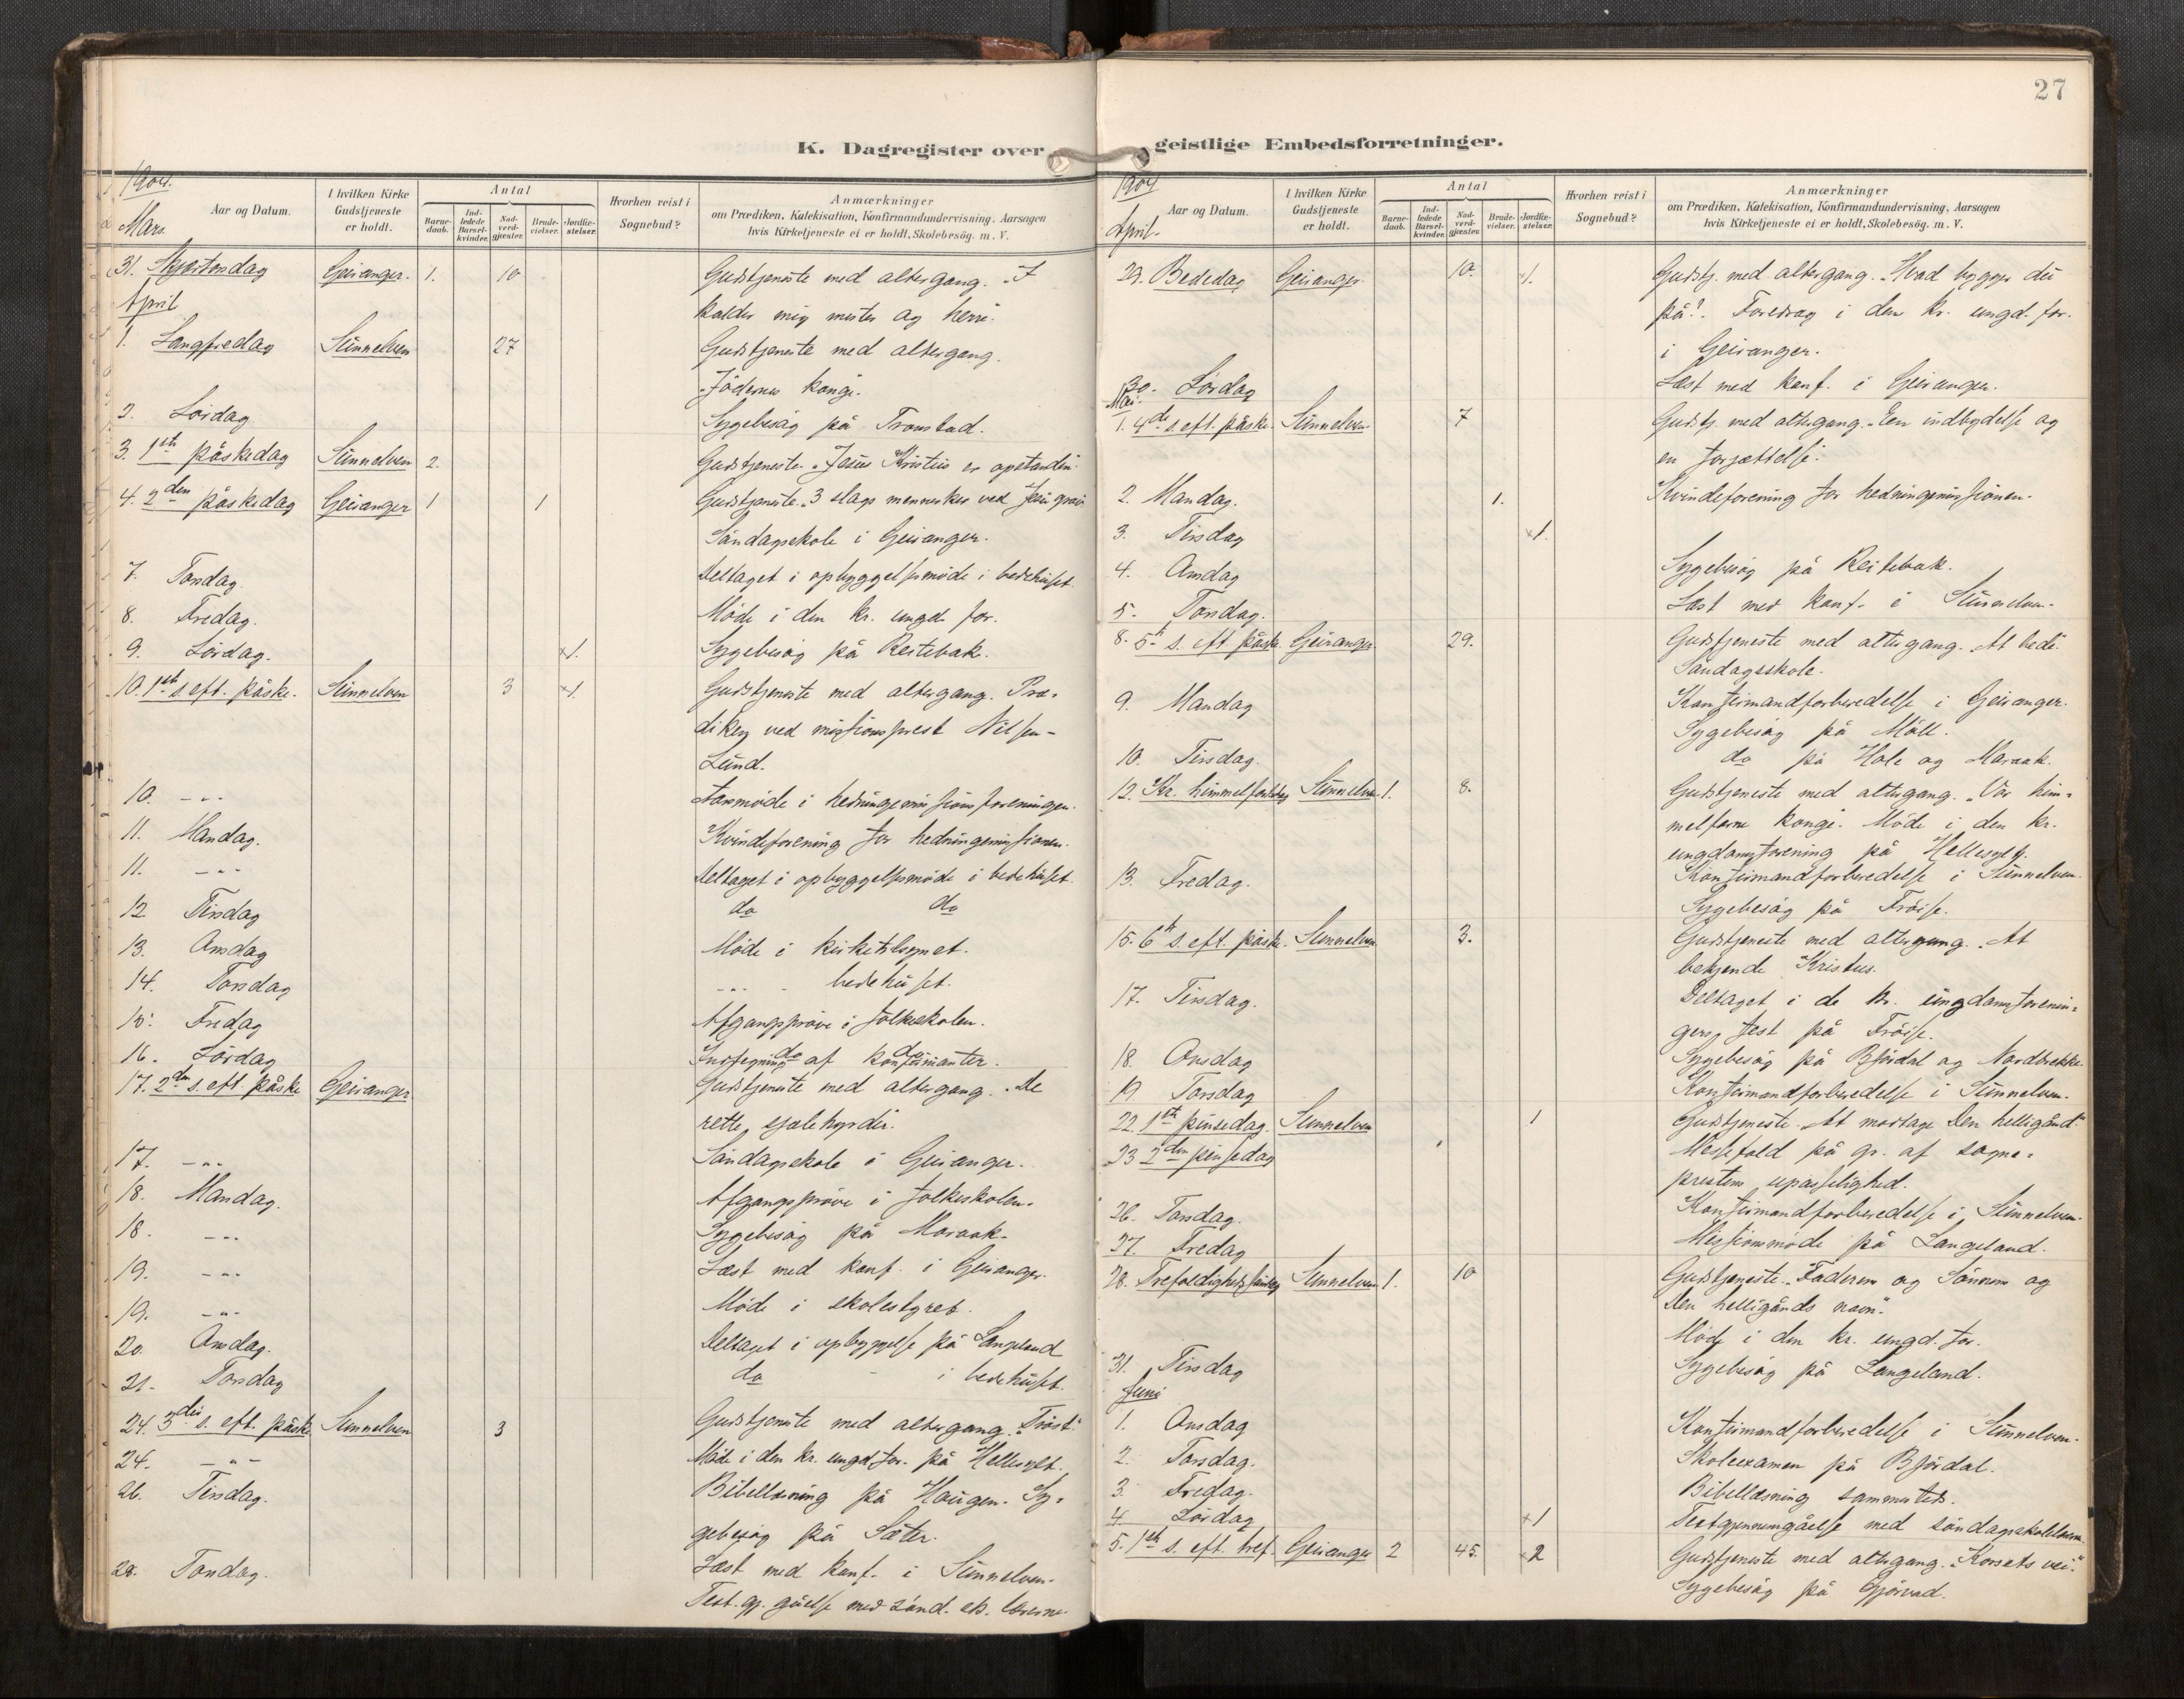 27
K. Dagregister over geistlige Embedsforretninger.
1904.
Mars.
Aar og Datum.
I hvilken Kirke Gudstjeneste er holdt.
Antal
Barne-daab.
Ind-ledede Barsel-kvinder.
Nad-verd-gjæster.
Brude-vielser.
Jordfæ-stelser.
Hvorhen reist i Sognebud?
Anmærkninger
om Prædiken, Katekisation, Konfirmandundervisning, Aarsagen
hvis Kirketjeneste ei er holdt, Skolebesög. m. V.
31. Skjærtorsdag Geiranger. 1. 10 Gudstjeneste med altergang. „I
April kalder mig mester og herre.
1. Langfredag Sunnelven 27 Gudstjeneste med altergang.
„Jödernes konge.
2. Lördag Sygebesög på Tronstad.
3. 1ste påskedag Sunnelven 2. Gudstjeneste. „Jesus Kristus er opstanden.
4. 2den påskedag Geiranger 1 1 Gudstjeneste. „3 slags mennesker ved Jesu grav.
Söndagsskole i Geiranger.
7. Torsdag. Deltaget i opbyggelsesmöde i bedehuset.
8. Fredag. Möde i den kr. ungd. for.
9. Lördag. x1. Sygebesög på Reitebak.
10. 1ste s. eft. påske. Sunnelven 3 x1. Gudstjeneste med altergang. Præ-
diken ved missionsprest Nilsen-
Lund.
10. -"- Aarsmöde i hedningemissionsforeningen.
11. Mandag. Kvindeforening for hedningemissionen.
11. -"- Deltaget i opbyggelsesmöde i bedehuset.
12 Tirsdag do do
13. Onsdag Möde i kirketilsynet.
14. Torsdag -"- - bedehuset.
15. Fredag Afgangspröve i folkeskolen.
16. Lördag do do
Indtegning af konfirmanter.
17. 2den s. eft. påske Geiranger Gudstjeneste med altergang. „De
rette sjælehyrder.
17. -"- Söndagsskole i Geiranger.
18. Mandag. Afgangspröve i folkeskolen.
18. -"- Sygebesög på Maraak.
19. -"- Læst med konf. i Geiranger.
19. -"- Möde i skolestyret.
20. Onsdag. Deltaget i opbyggelse på Langeland
21. Torsdag do - i bedehuset.
24. 3die s. eft. påske Sunnelven 3 Gudstjeneste med altergang. „Tröst."
24. -"- Möde i den kr. ungd. for. på Hellesylt.
26. Tirsdag. Bibellæsning på Haugen. Sy-
gebesög på Sæter.
28. Torsdag. Læst med konf. i Sunnelven.
Text. gj. gåelse med sönd. sk. lærerne.
1904
April.
Aar og Datum.
I hvilken Kirke Gudstjeneste er holdt.
Antal
Barne-daab.
Ind-ledede Barsel-kvinder.
Nad-verd-gjæster.
Brude-vielser.
Jordfæ-stelser.
Hvorhen reist i Sognebud?
Anmærkninger
om Prædiken, Katekisation, Konfirmandundervisning, Aarsagen
hvis Kirketjeneste ei er holdt, Skolebesög. m. V.
29. Bededag Geiranger. 10. x1. Gudstj. med altergang. „Hvad bygger du
på?". Foredrag i den kr. ungd. for.
i Geiranger.
30. Lördag Læst med konf. i Geiranger.
Mai.
1. 4de s. eft. påske. Sunnelven. 7 Gudstj. med altergang. „Een indbydelse og
en forjættelse."
2. Mandag. 1. Kvindeforening for hedningemissionen.
3. Tirsdag x1.
4. Onsdag Sygebesög på Reitebak.
5. Torsdag. Læst med konf. i Sunnelven.
8. 5te s. eft påske. Geiranger 29. Gudstjeneste med altergang. „At bede.
Söndagsskole.
9. Mandag Konfirmandforberedelse i Geiranger.
Sygebesög på Möll.
10. Tirsdag. do på Hole og Maraak.
12. Kr. himmelfartsdag Sunnelven 1. 8. Gudstjeneste med altergang. „Vor him-
melfarne konge. Möde i den kr.
ungdomsforening på Hellesylt.
13. Fredag. Konfirmandforberedelse i Sunnelven.
Sygebesög på Fröise.
15. 6te s. eft. påske. Sunnelven 3. Gudstjeneste med altergang. „At
bekjende Kristus.
17. Tirsdag. Deltaget i de kr. ungdomsforenin-
gers fest på Fröise.
18. Onsdag Sygebesög på Björdal og Nordbrekke.
19. Torsdag Konfirmandforberedelse i Sunnelven.
22. 1ste pinsedag. Sunnelven 1 Gudstjeneste. „At mottage den helligånd."
23 2den pinsedag Messefald på gr. af sogne-
prestens upasselighed.
26. Torsdag. Konfirmandforberedelse i Sunnelven.
27. Fredag Missionsmöde på Langeland.
28. Trefoldighedssöndag Sunnelven 1. 10 Gudstjeneste. „Faderens og Sönnens og
den helligånds navn."
Möde i den kr. ungd. for.
31. Tirsdag Sygebesög på Langeland.
Juni
1. Onsdag Konfirmandforberedelse i Sunnelven.
2. Torsdag. Skoleexamen på Björdal.
3. Fredag. Bibellæsning sammesteds.
4. Lördag x1 Textgjennemgåelse med söndagsskolelærerne.
5. 1ste s. eft. tref. Geiranger 2 45. x2 Gudstjeneste med altergang. „Korsets vei."
Sygebesög på Gjörvad.